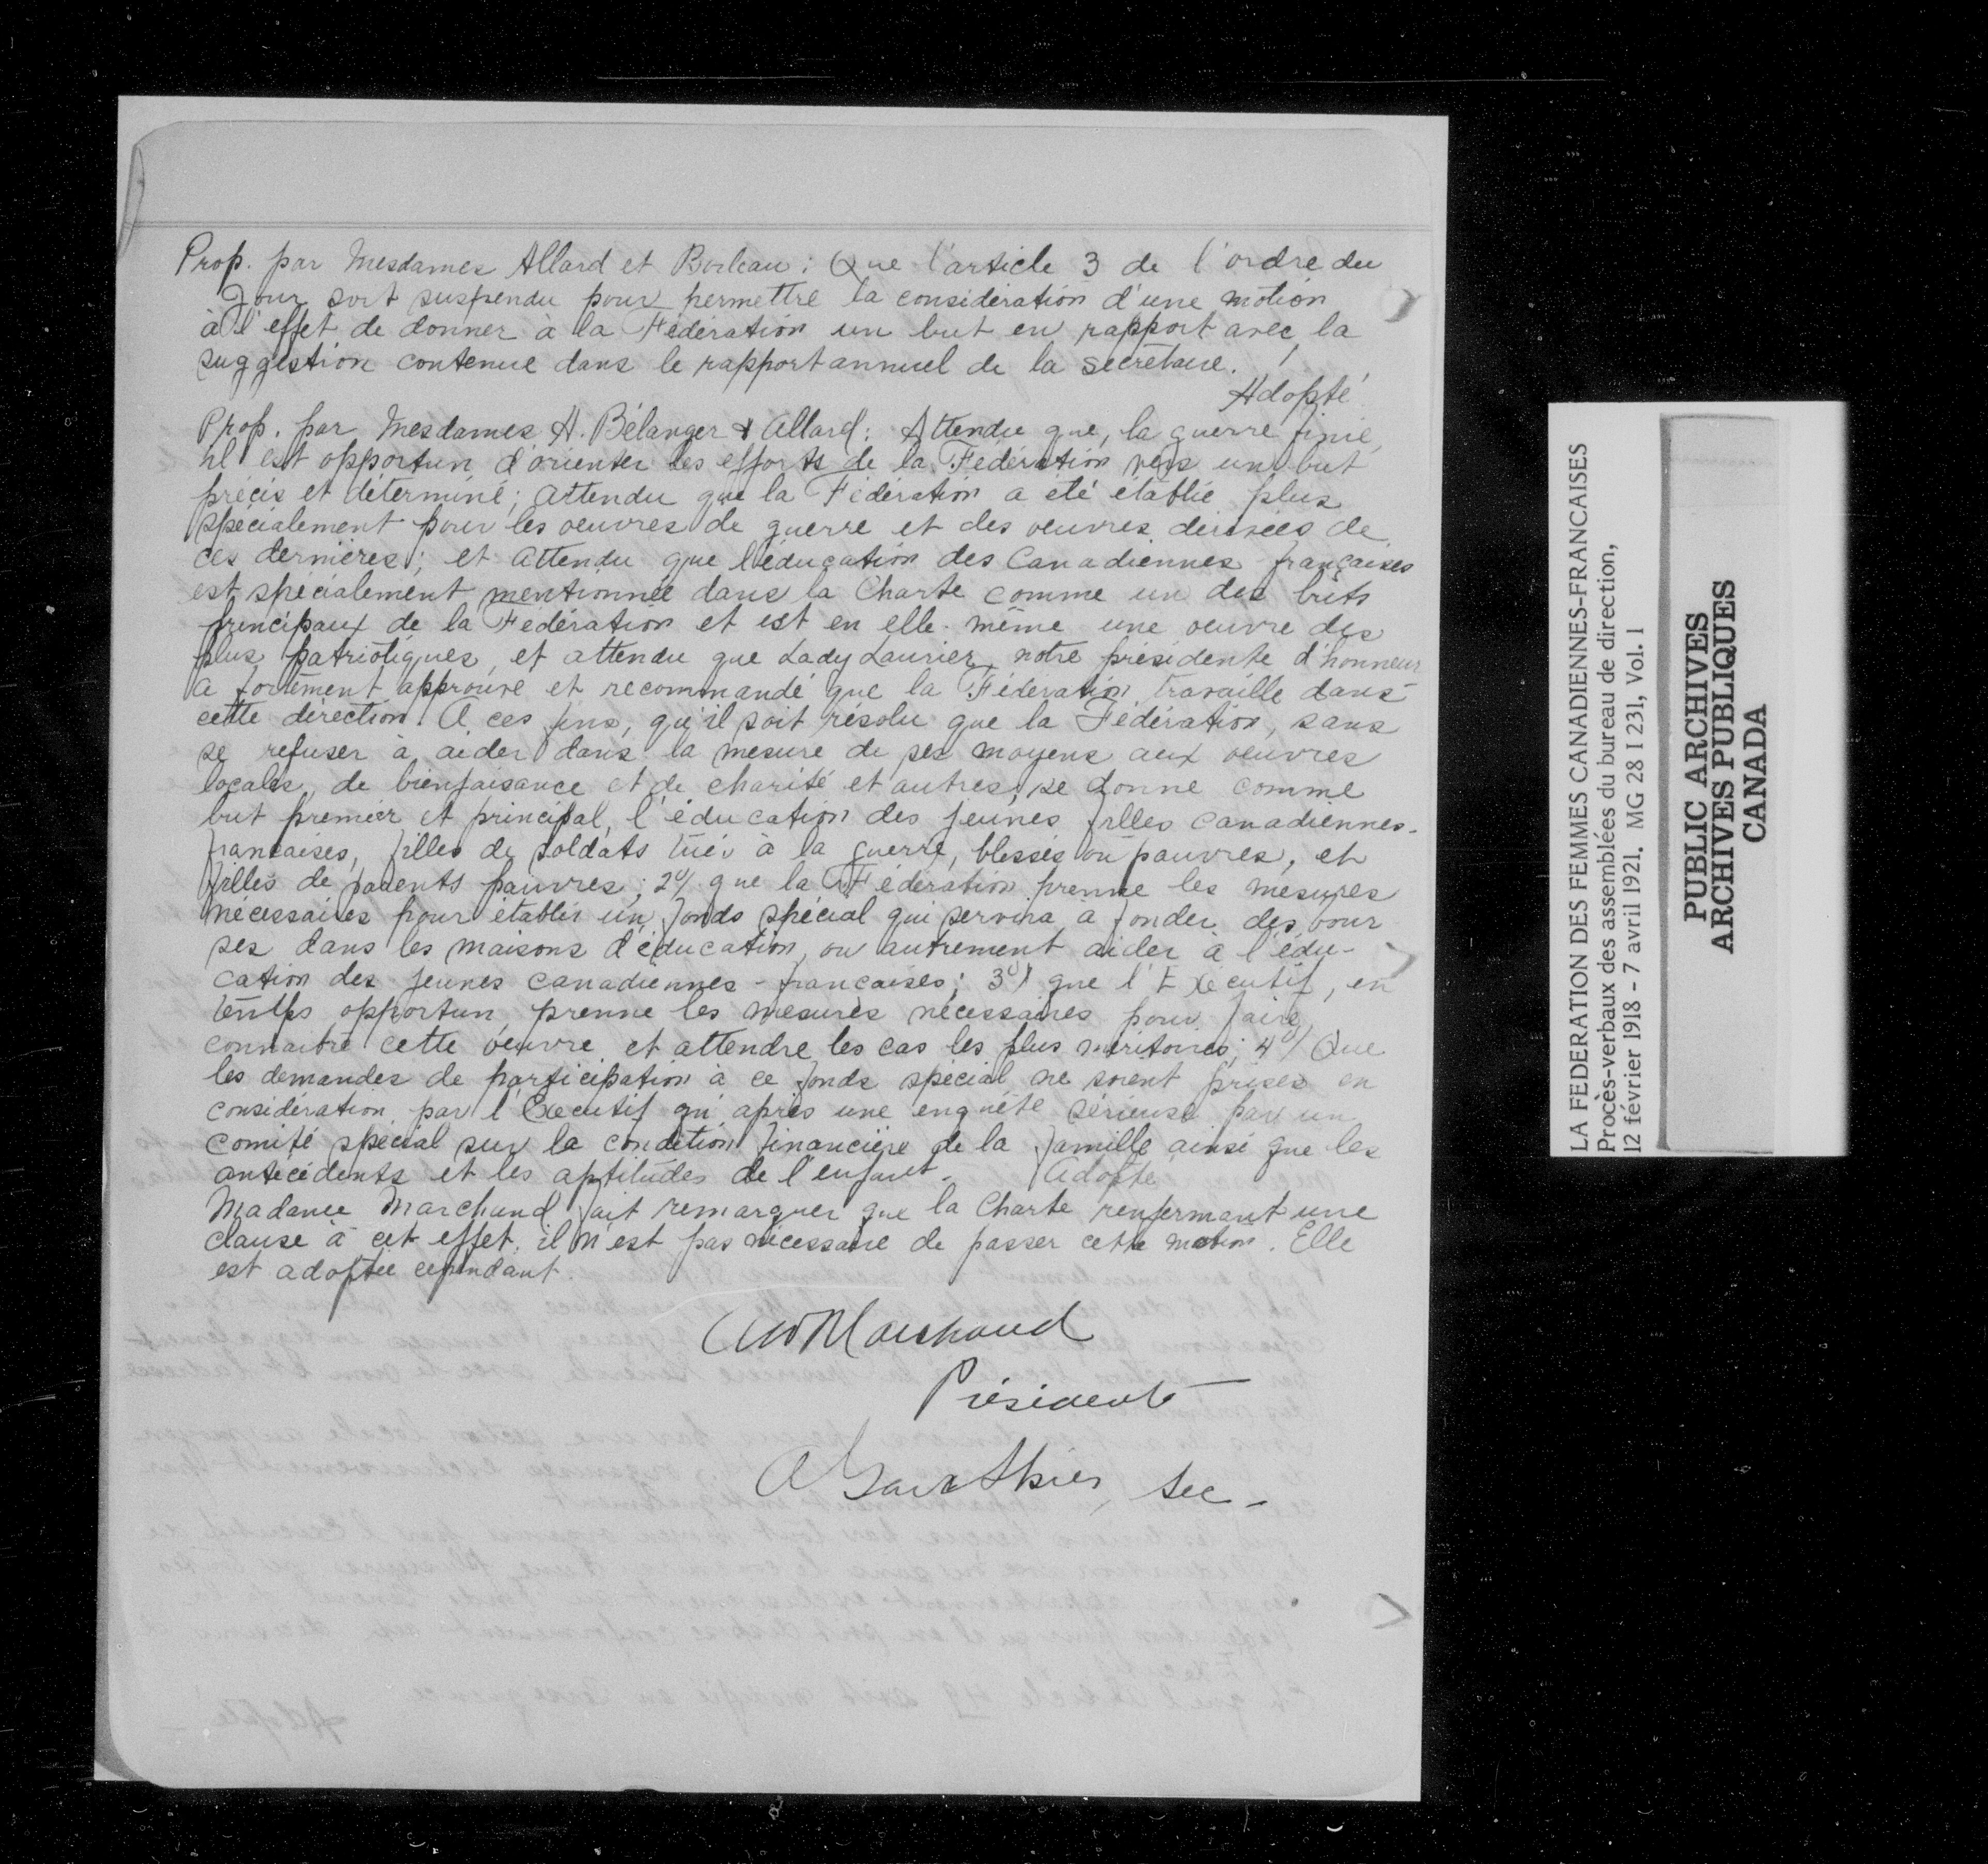 Prop. par Mesdames Allard et Boileau : Que l'article 3 de l'ordre du
Jour soit suspendu pour permettre la considération d'une motion
à l'effet de donner à la Fédération un but en rapport avec la
suggestion contenue dans le rapport annuel de la secrétaire.
Adopté
Prop. par Mesdames A. Bélanger & Allard : Attendu que, la guerre finie,
il est opportun d'orienter les efforts de la Fédération vers un but
précis et déterminé ; attendu que la Fédération a été établie plus
spécialement pour les oeuvres de guerre et des oeuvres dérivées de
ces dernières ; et attendu que l'éducation des Canadiennes françaises
est spécialement mentionnée dans la Charte comme un des buts
principaux de la Fédération et est en elle-même une oeuvre des
plus patriotiques, et attendu que Lady Laurier, notre présidente d'honneur
a fortement approuvé et recommandé que la Fédération travaille dans
cette direction. A ces fins, qu'il soit résolu que la Fédération, sans
se refuser à aider dans la mesure de ses moyens aux oeuvres
locales, de bienfaisance et de charité et autres, se donne comme
but premier et principal, l'éducation des jeunes filles canadiennes-
françaises, filles de soldats tués à la guerre, blessés ou pauvres, et
filles de parents pauvres ; 2º/ que la Fédération prenne les mesures
nécessaires pour établir un fonds spécial qui servira à fonder des bour
ses dans les maisons d'éducation, ou autrement aider à l'édu-
cation des jeunes canadiennes-françaises ; 3º/ que l'Exécutif, en
temps opportun, prenne les mesures nécessaires pour faire
connaitre cette oeuvre et attendre les cas les plus méritoires ; 4º/ Que
les demandes de participation à ce fonds spécial ne soient prises en
considération par l'Exécutif qu'après une enquête sérieuse par un
comité spécial sur la condition financière de la famille ainsi que les
antécédents et les aptitudes de l'enfant. Adopté
Madame Marchand fait remarquer que la Charte renfermant une
clause à cet effet, il n'est pas nécessaire de passer cette motion. Elle
est adoptée cependant.
Marchand
Présidente
A Gauthier, Sec-
LA FEDERATION DES FEMMES CANADIENNES-FRANCAISES
Procès-verbaux des assemblées du bureau de direction,
12 février 1918 - 7 avril 1921. MG 28 I 231, Vol. 1
PUBLIC ARCHIVES
ARCHIVES PUBLIQUES
CANADA